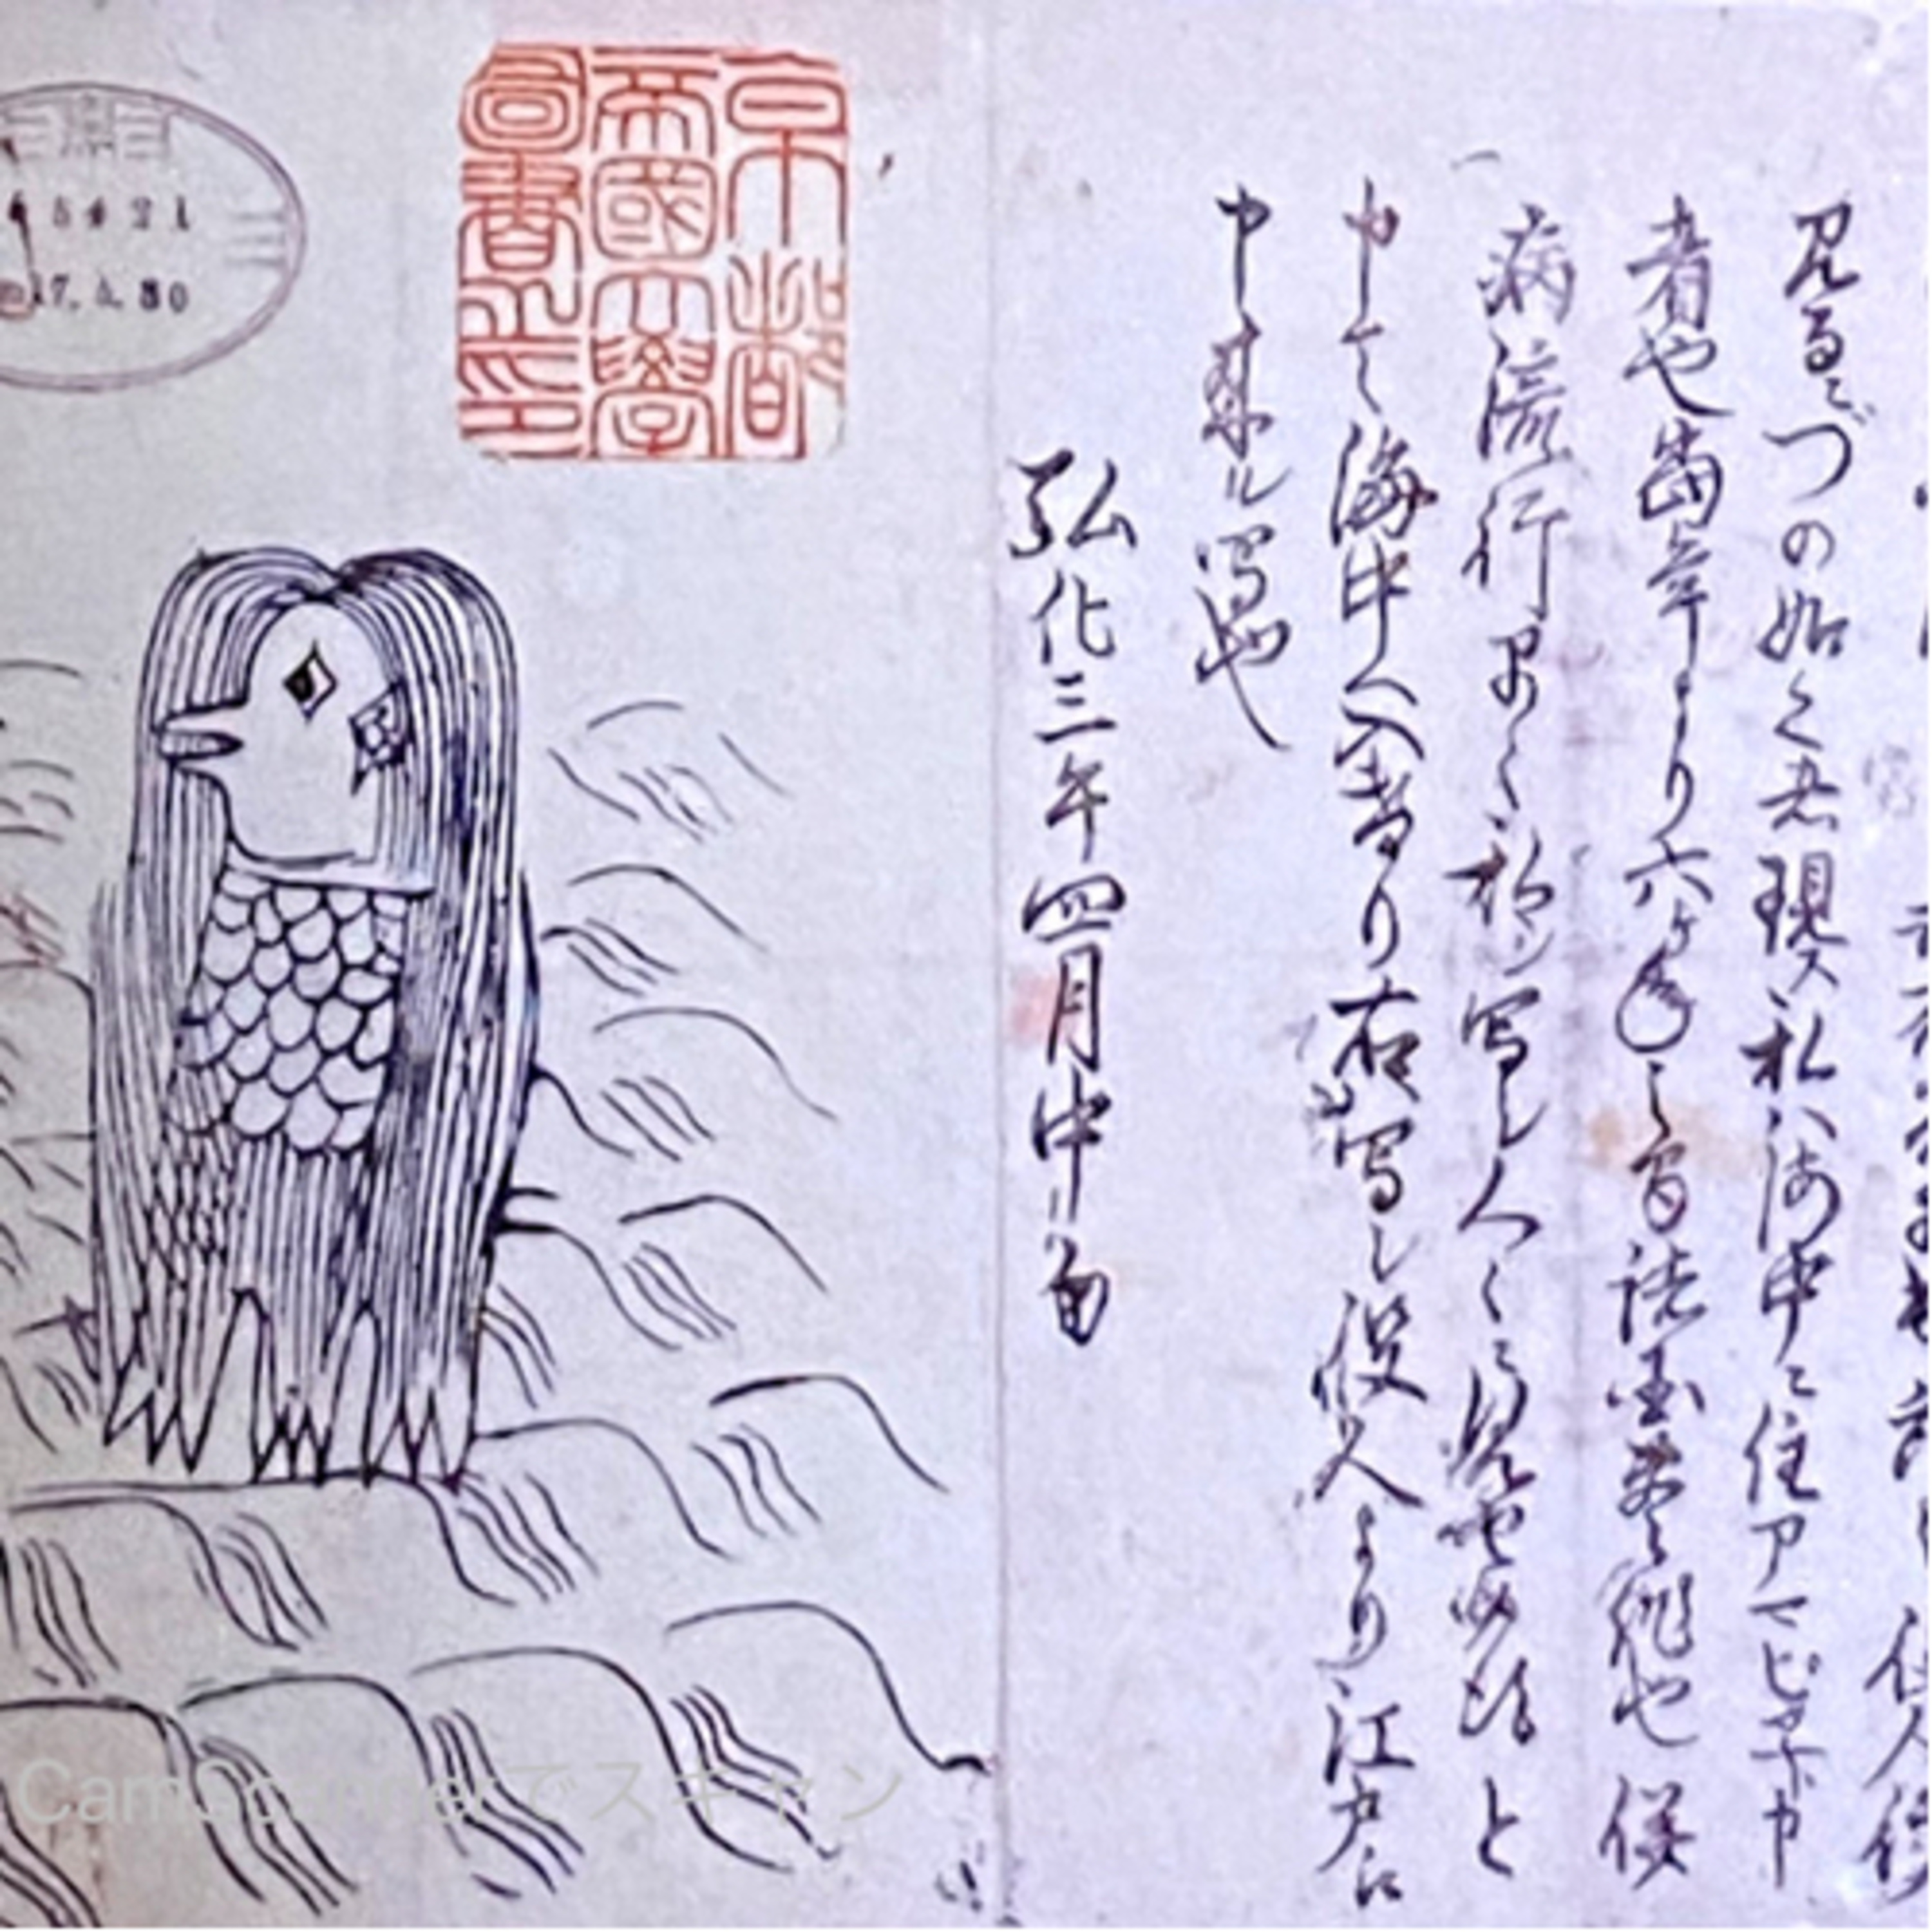 見るニづの如く者現ス私ハ海中ニ住アマビヱト申
者也當年より六ケ年之間諸国豊作也併
病流行早々私シ写シ人々ニ見セ候得と
申て海中へ入けり右写シ役人より江戸江
申来ル写也
弘化三年四月中旬
京都
帝國大學
圖書之印
CamScannerでスキャン